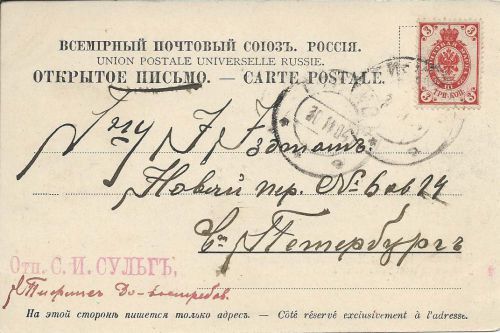 ВСЕМІРНЫЙ ПОЧТОВЫЙ СОЮЗЪ. РОССІЯ.
UNION POSTALE UNIVERSELLE RUSSIE.
ОТКРЫТОЕ ПИСЬМО. — CARTE POSTALE.
3 3
3 ТРИ КОП. 3
Г-ну
Новый пер. № 6
С. Петербургъ
Отп. С. И. СУЛЬГЪ,
Тифлисъ До-востребов.
На этой сторонѣ пишется только адресъ. — Côté réservé exclusivement à l'adresse.